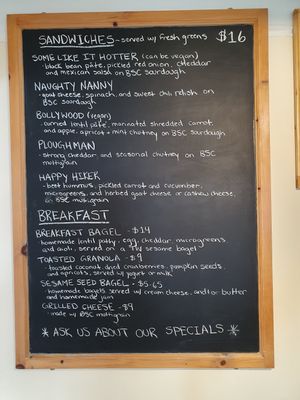 SANDWICHES - served w/ fresh greens $16
SOME LIKE IT HOTTER (can be vegan)
- black bean pâté, pickled red onion, cheddar
and mexican salsa on BSC sourdough
NAUGHTY NANNY
- goat cheese, spinach, and sweet chili relish on
BSC sourdough
BOLLYWOOD (vegan)
- curried lentil pâté, marinated shredded carrot,
and apple, apricot + mint chutney on BSC sourdough
PLOUGHMAN
- strong cheddar and seasonal chutney on BSC
multigrain
HAPPY HIKER
- beet hummus, pickled carrot and cucumber,
microgreens, and herbed goat cheese or cashew cheese,
on BSC multigrain
BREAKFAST
BREAKFAST BAGEL - $14
- homemade lentil patty, egg, cheddar, microgreens
and aioli, served on a sesame bagel
TOASTED GRANOLA - $9
- toasted coconut, dried cranberries, pumpkin seeds,
and apricots, served w/ yogurt or milk
SESAME SEED BAGEL - $5.65
- homemade bagels served w/ cream cheese, and/or butter
and homemade jam
GRILLED CHEESE - $9
- made w/ BSC multigrain
* ASK US ABOUT OUR SPECIALS *